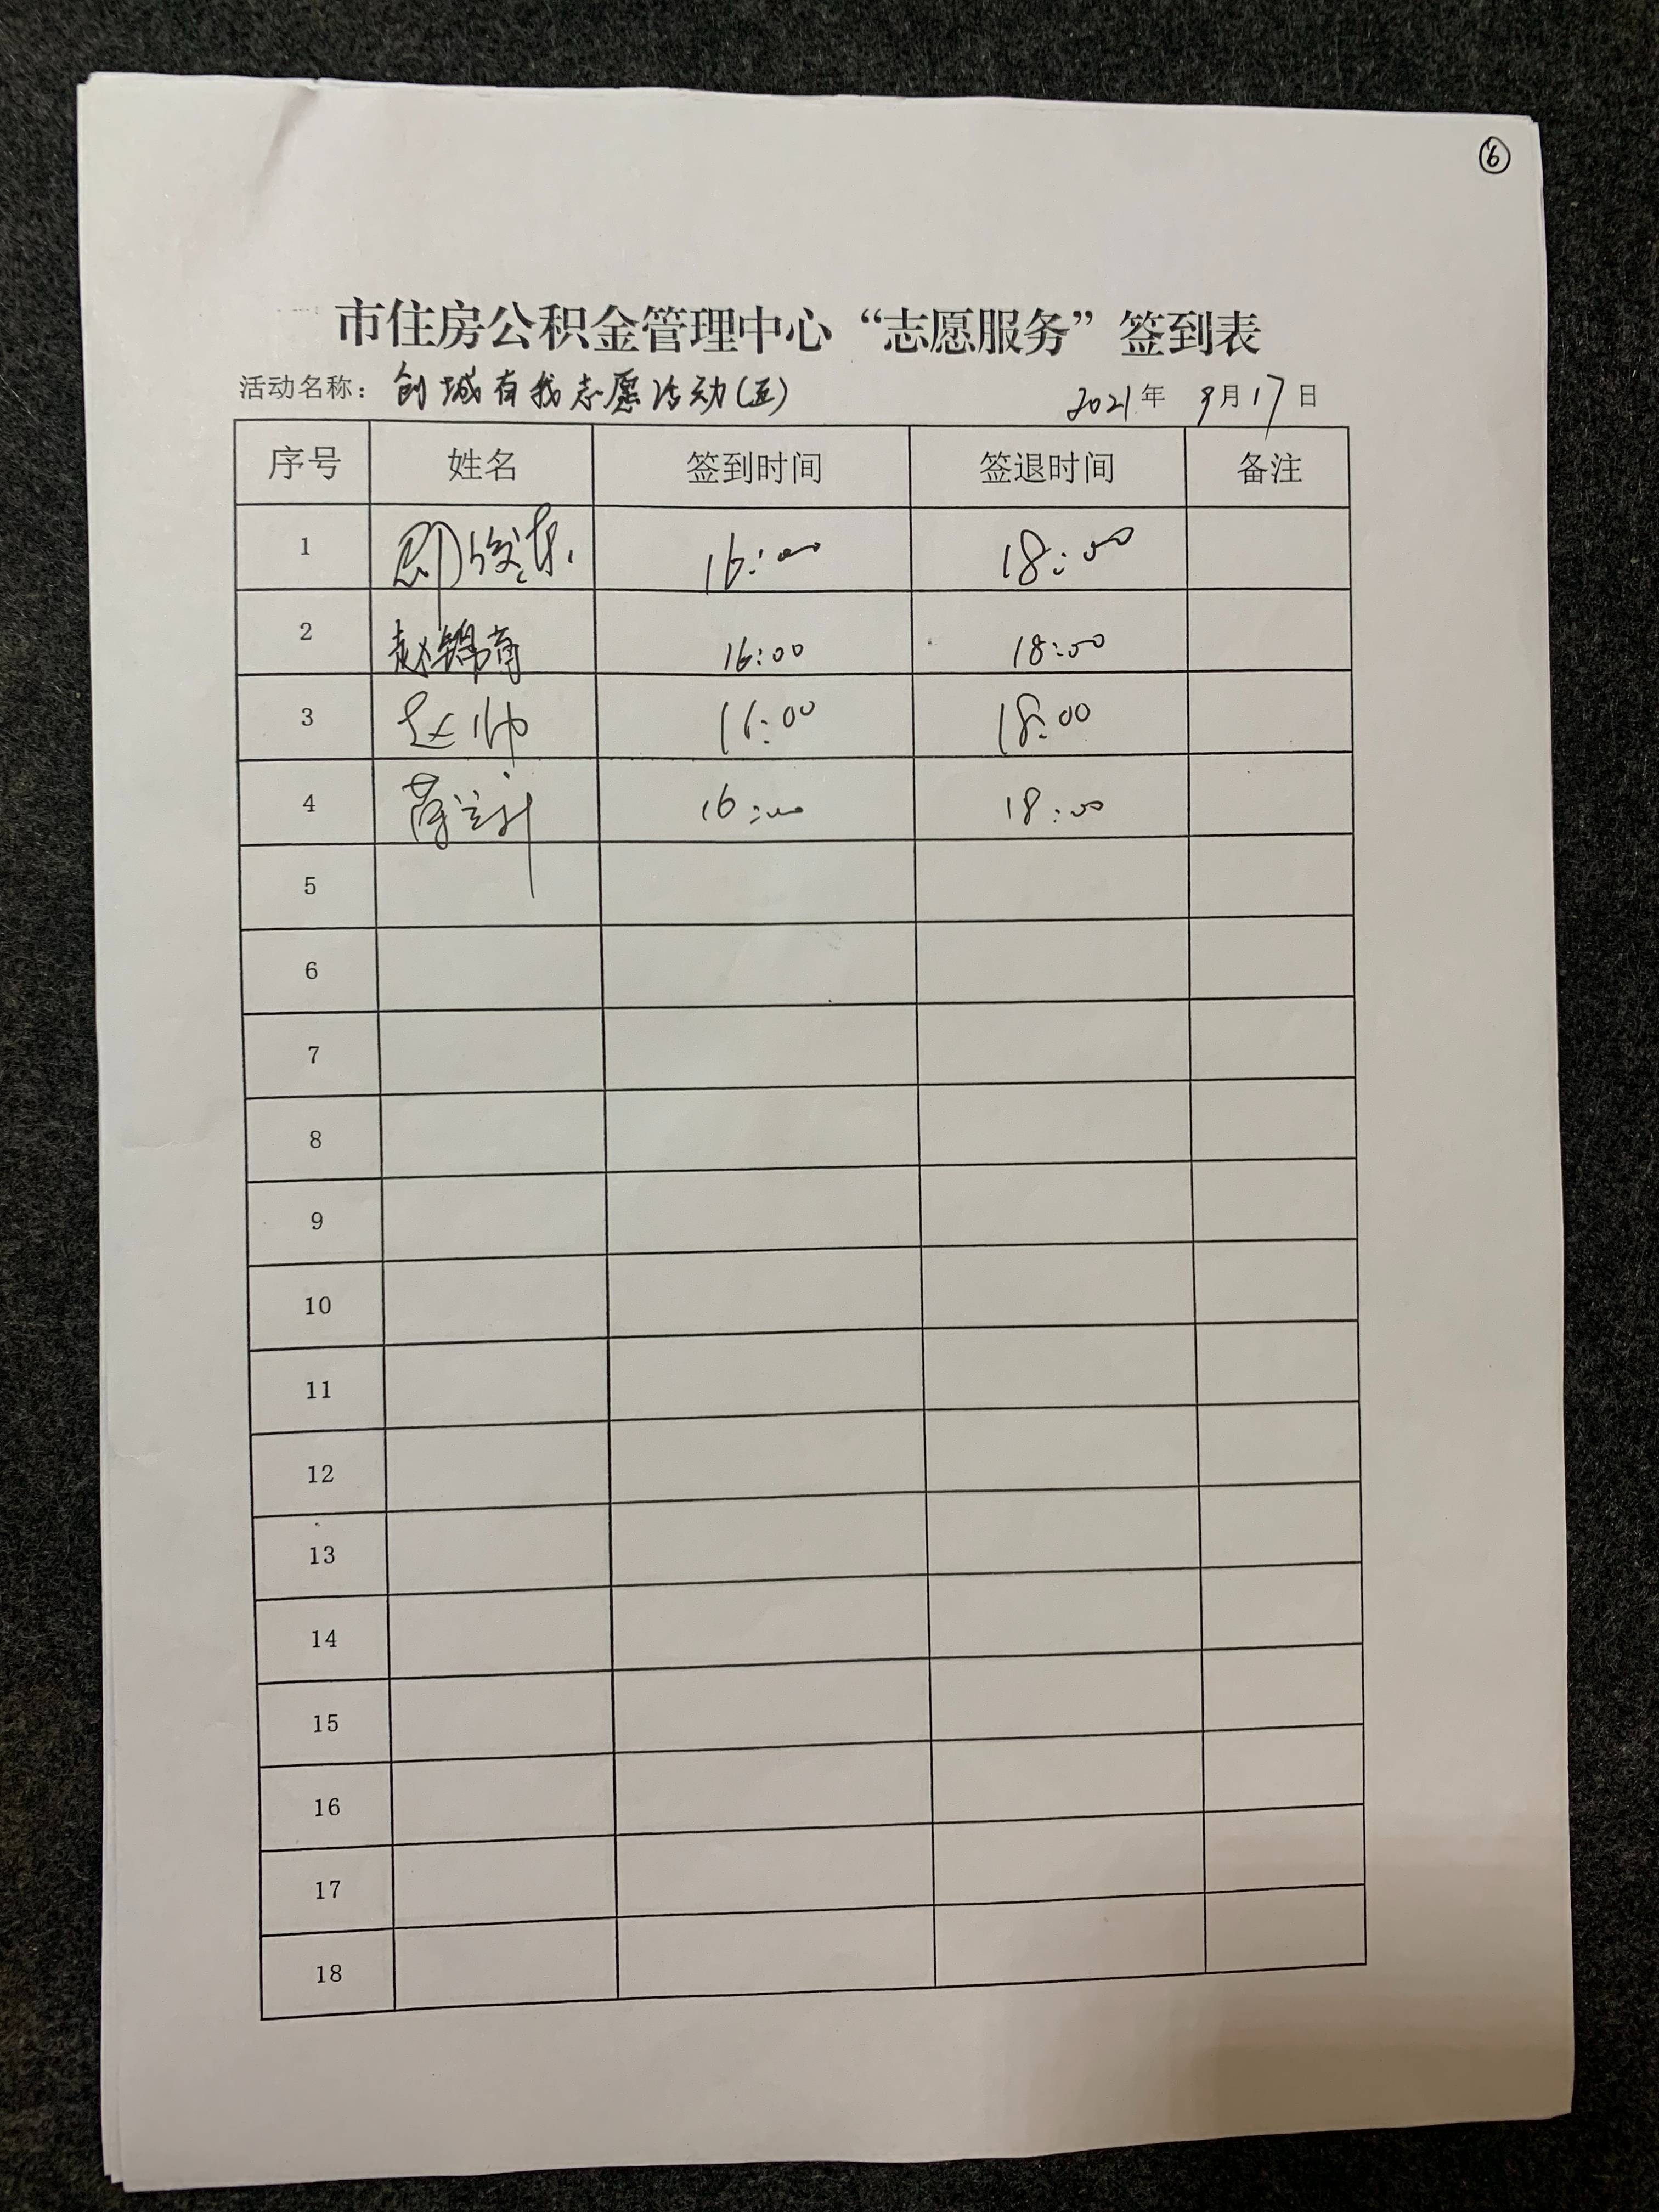 ⑥
市住房公积金管理中心“志愿服务”签到表
活动名称：创城有我志愿活动(五) 2021年 9月17日
序号 姓名 签到时间 签退时间 备注
1 16:00 18:00
2 赵锦南 16:00 18:00
3 赵帅 16:00 18:00
4 16:00 18:00
5
6
7
8
9
10
11
12
13
14
15
16
17
18